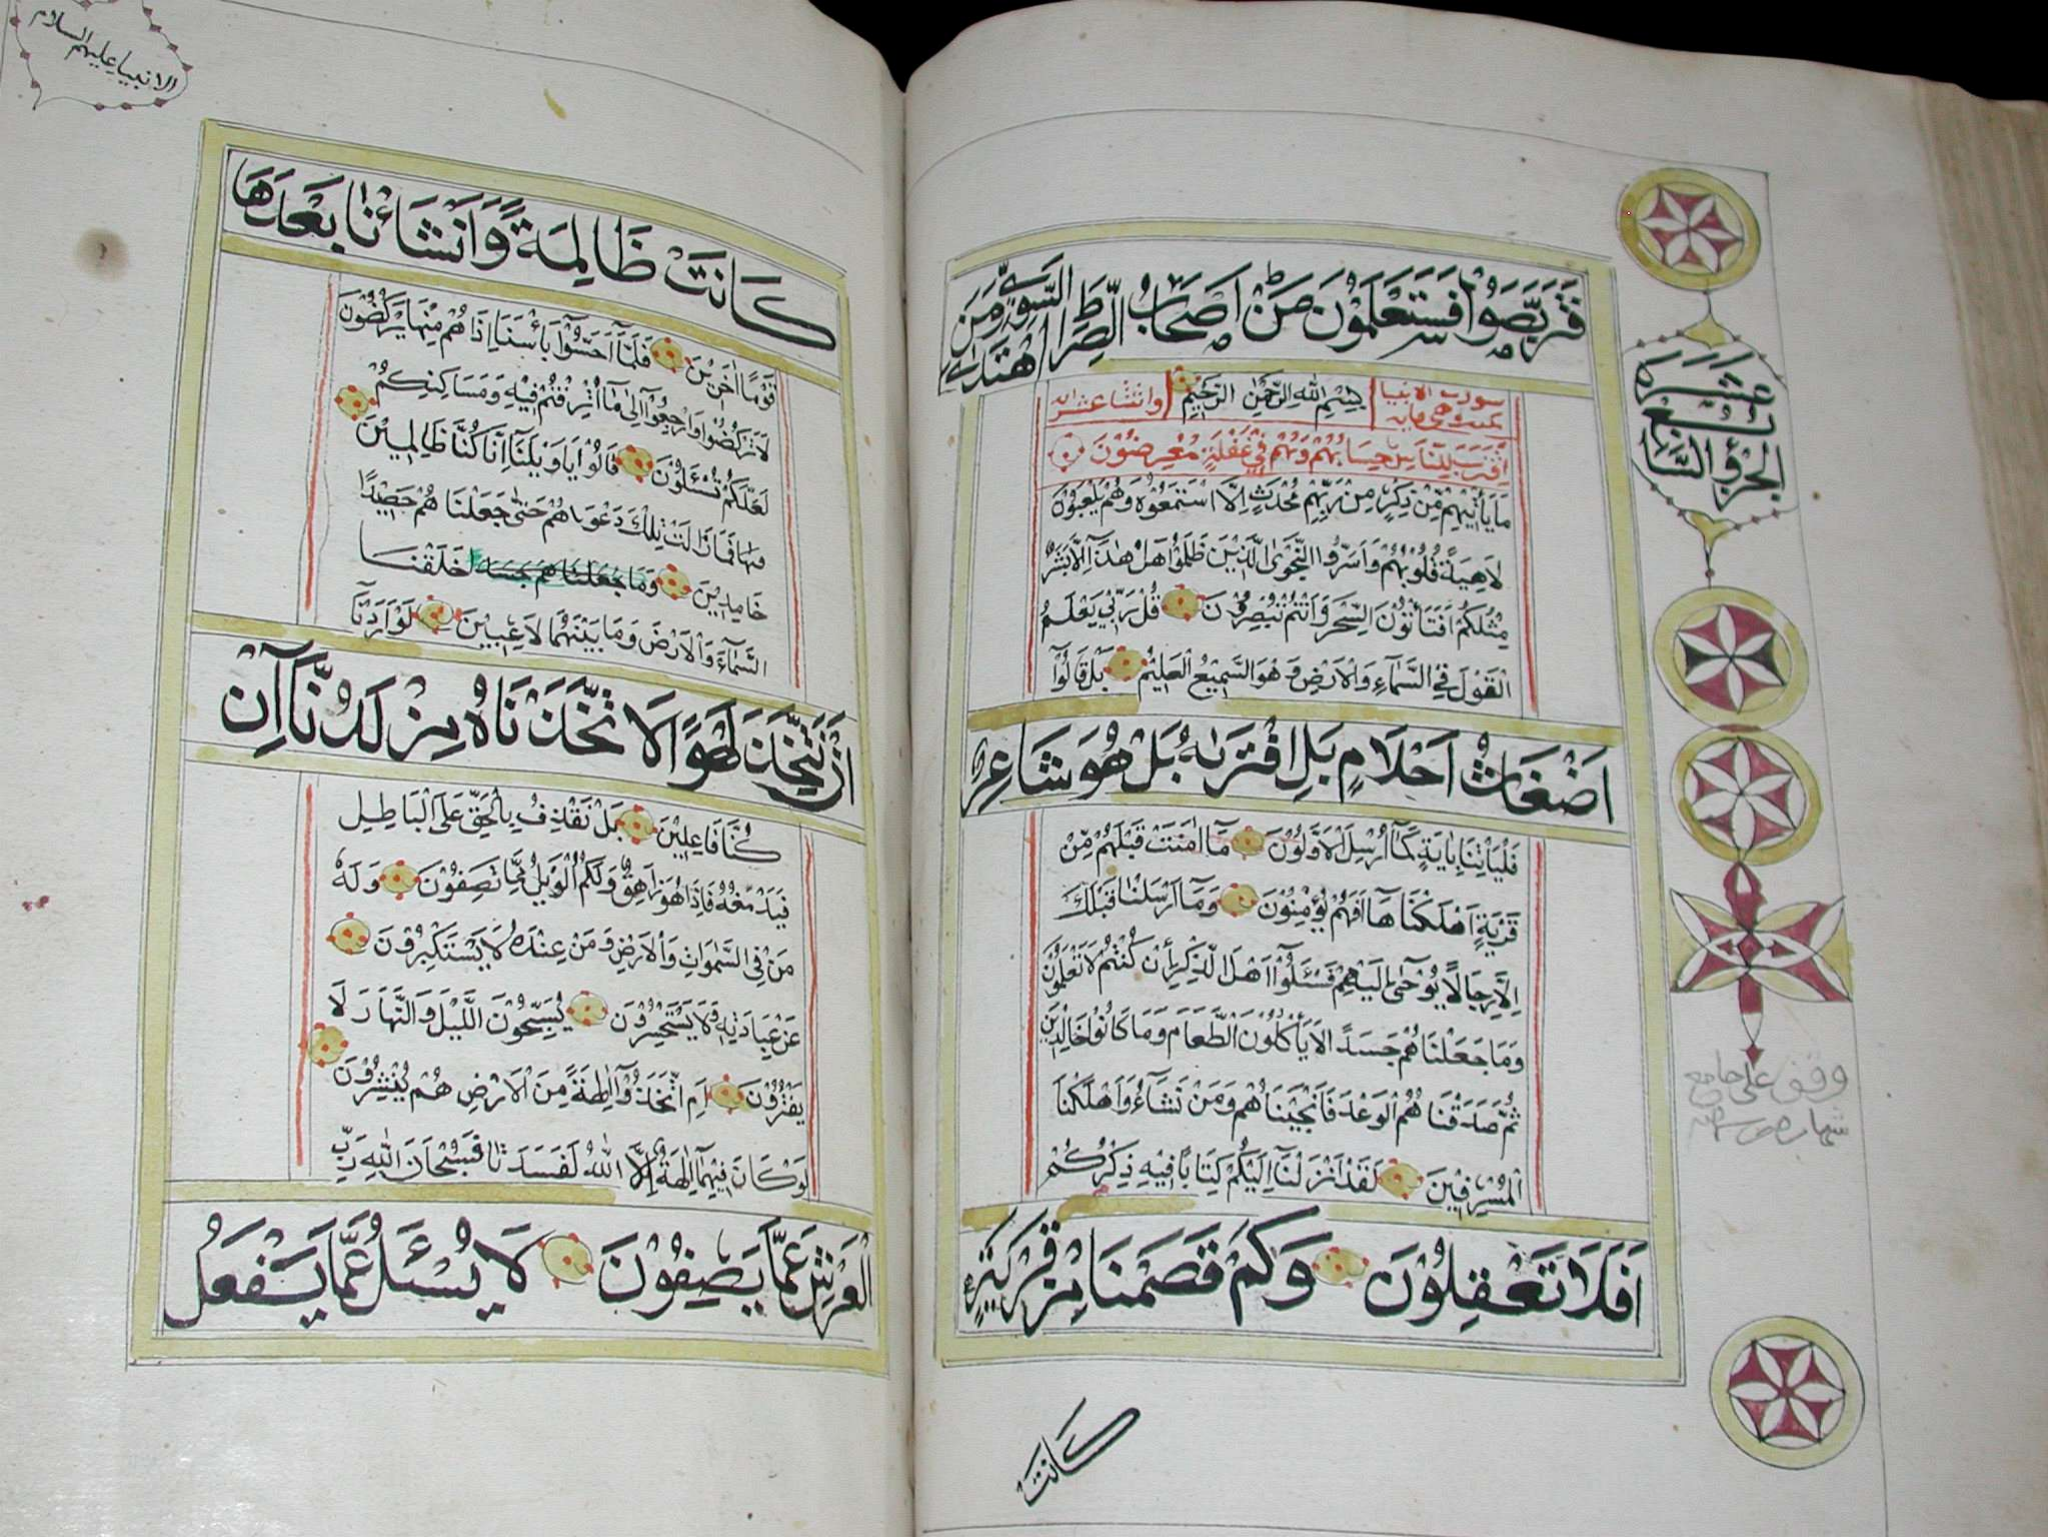 فَتَرَبَّصُوْا فَسَتَعْلَمُوْنَ مَنْ اَصْحَابُ الصِّرَاطِ السَّوِيِّ وَمَنِ اهْتَدٰى
سورت الانبيا
بِسْمِ اللهِ الرَّحْمٰنِ الرَّحِيْمِ
واثنتا عشر اية
مكيت وهي ماية
اِقْتَرَبَ لِلنَّاسِ حِسَابُهُمْ وَهُمْ فِيْ غَفْلَةٍ مُعْرِضُوْنَ
مَا يَأْتِيْهِمْ مِّنْ ذِكْرٍ مِنْ رَبِّهِمْ مُحْدَثٍ اِلَّا اسْتَمَعُوْهُ وَهُمْ يَلْعَبُوْنَ
لَاهِيَةً قُلُوْبُهُمْ وَاَسَرُّوا النَّجْوَى الَّذِيْنَ ظَلَمُوْا هَلْ هٰذَا اِلَّا بَشَرٌ
مِثْلُكُمْ اَفَتَأْتُوْنَ السِّحْرَ وَاَنْتُمْ تُبْصِرُوْنَ قُلْ رَبِّيْ يَعْلَمُ
الْقَوْلَ فِي السَّمَآءِ وَالْاَرْضِ وَهُوَ السَّمِيْعُ الْعَلِيْمُ بَلْ قَالُوْآ
اَضْغَاثُ اَحْلَامٍ بَلِ افْتَرٰىهُ بَلْ هُوَ شَاعِرٌ
فَلْيَأْتِنَا بِاٰيَةٍ كَمَآ اُرْسِلَ الْاَوَّلُوْنَ مَآ اٰمَنَتْ قَبْلَهُمْ مِّنْ
قَرْيَةٍ اَهْلَكْنَاهَآ اَفَهُمْ يُؤْمِنُوْنَ وَمَآ اَرْسَلْنَا قَبْلَكَ
اِلَّا رِجَالًا يُوْحٰى اِلَيْهِمْ فَسْئَلُوْآ اَهْلَ الذِّكْرِ اِنْ كُنْتُمْ لَا تَعْلَمُوْنَ
وَمَا جَعَلْنَاهُمْ جَسَدًا لَا يَأْكُلُوْنَ الطَّعَامَ وَمَا كَانُوْا خَالِدِيْنَ
ثُمَّ صَدَقْنَاهُمُ الْوَعْدَ فَاَنْجَيْنَاهُمْ وَمَنْ نَشَآءُ وَاَهْلَكْنَا
الْمُسْرِفِيْنَ لَقَدْ اَنْزَلْنَآ اِلَيْكُمْ كِتَابًا فِيْهِ ذِكْرُكُمْ
اَفَلَا تَعْقِلُوْنَ وَكَمْ قَصَمْنَا مِنْ قَرْيَةٍ
كَانَتْ
الجزؤ السابع
عشر
وقف على جامع
الانبيا عليهم السلام
كَانَتْ ظَالِمَةً وَاَنْشَأْنَا بَعْدَهَا
قَوْمًا اٰخَرِيْنَ فَلَمَّآ اَحَسُّوْا بَأْسَنَا اِذَا هُمْ مِنْهَا يَرْكُضُوْنَ
لَا تَرْكُضُوْا وَارْجِعُوْآ اِلٰى مَآ اُتْرِفْتُمْ فِيْهِ وَمَسَاكِنِكُمْ
لَعَلَّكُمْ تُسْئَلُوْنَ قَالُوْا يَاوَيْلَنَآ اِنَّا كُنَّا ظَالِمِيْنَ
فَمَا زَالَتْ تِلْكَ دَعْوَاهُمْ حَتّٰى جَعَلْنَاهُمْ حَصِيْدًا
خَامِدِيْنَ وَمَا جَعَلْنَاهُمْ جسد خَلَقْنَا
السَّمَآءَ وَالْاَرْضَ وَمَا بَيْنَهُمَا لَاعِبِيْنَ لَوْ اَرَدْنَآ
اَنْ نَتَّخِذَ لَهْوًا لَا تَّخَذْنَاهُ مِنْ لَدُنَّآ اِنْ
كُنَّا فَاعِلِيْنَ بَلْ نَقْذِفُ بِالْحَقِّ عَلَى الْبَاطِلِ
فَيَدْمَغُهُ فَاِذَا هُوَ زَاهِقٌ وَلَكُمُ الْوَيْلُ مِمَّا تَصِفُوْنَ وَلَهُ
مَنْ فِي السَّمٰوَاتِ وَالْاَرْضِ وَمَنْ عِنْدَهُ لَا يَسْتَكْبِرُوْنَ
عَنْ عِبَادَتِهِ وَلَا يَسْتَحْسِرُوْنَ يُسَبِّحُوْنَ اللَّيْلَ وَالنَّهَارَ لَا
يَفْتُرُوْنَ اَمِ اتَّخَذُوْآ اٰلِهَةً مِنَ الْاَرْضِ هُمْ يُنْشِرُوْنَ
لَوْ كَانَ فِيْهِمَآ اٰلِهَةٌ اِلَّا اللهُ لَفَسَدَتَا فَسُبْحَانَ اللهِ رَبِّ
الْعَرْشِ عَمَّا يَصِفُوْنَ لَا يُسْئَلُ عَمَّا يَفْعَلُ